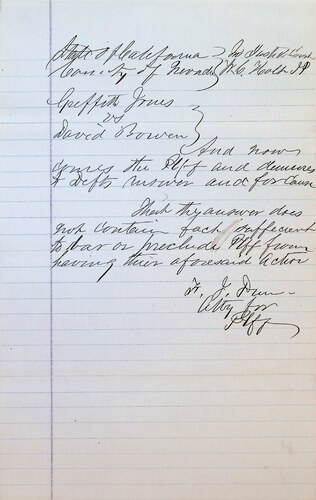 State of California } In Justice Court
County of Nevada } 
Griffith Jones
vs
David Bowen }
And now
comes the Plff and demurs
to Defts answer and for cause
That the answer does
not contain facts sufficient
to bar or preclude Plff from
having their aforesaid action
F. J. Dunn
Atty for
Plff